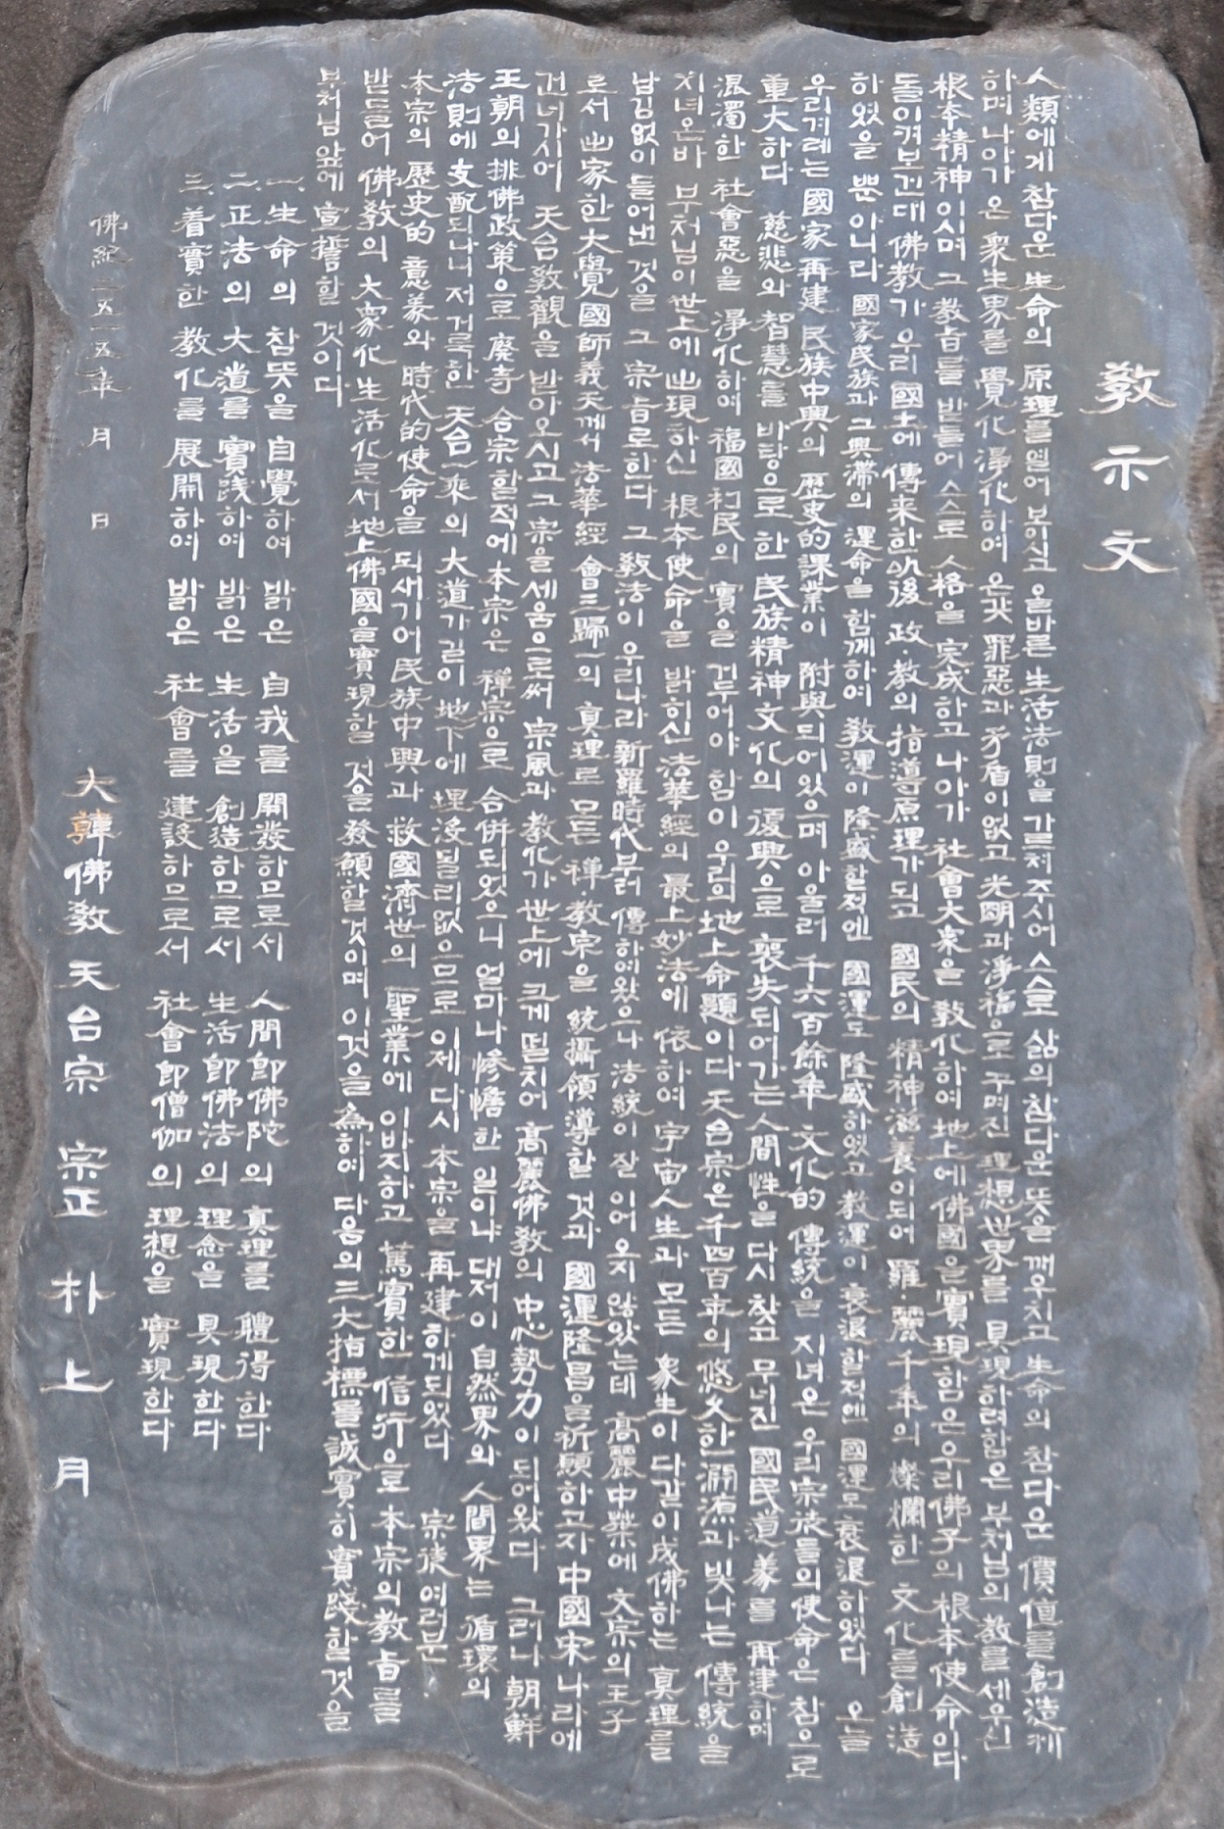 敎示文
人類에게 참다운 生命의 原理를 열어 보이시고 올바른 生活法則을 가르쳐주시어 스스로 삶의 참다운 뜻을 깨우치고 生命의 참다운 價値를 創造케
하며 나아가 온 衆生界를 覺化 淨化하여 온갖 罪惡과 矛盾이 없고 光明과 淨福으로 꾸며진 理想世界를 具現하려 함은 부처님의 敎를 세우신
根本精神이시며 그 敎旨를 받들어 스스로 人格을 完成하고 나아가 社會大衆을 敎化하여 地上에 佛國을 實現함은 우리 佛子의 根本使命이다
돌이켜보건대 佛敎가 우리 國土에 傳來한 以後 政·敎의 指導原理가 되고 國民의 精神滋養이 되어 羅·麗 千年의 燦爛한 文化를 創造
하였을 뿐 아니라 國家民族과 그 興滯의 運命을 함께하여 敎運이 隆盛할적엔 國運도 隆盛하였고 敎運이 衰退할적엔 國運도 衰退하였다 오늘
우리겨레는 國家再建 民族中興의 歷史的課業이 附與되어있으며 아울러 千六百餘年 文化的 傳統을 지녀온 우리 宗徒들의 使命은 참으로
重大하다 慈悲와 智慧를 바탕으로 한 民族精神文化의 復興으로 喪失되어가는 人間性을 다시 찾고 무너진 國民道義를 再建하며
混濁한 社會惡을 淨化하여 福國利民의 實을 거두어야 함이 우리의 地上命題이다 天台宗은 千四百年의 悠久한 淵源과 빛나는 傳統을
지녀온바 부처님이 世上에 出現하신 根本使命을 밝히신 法華經의 最上妙法에 依하여 宇宙人生과 모든 衆生이 다같이 成佛하는 眞理를
남김없이 들어낸 것을 그 宗旨로 한다 그 敎法이 우리나라 新羅時代부터 傳하여왔으나 法統이 잘 이어 오지 않았는데 高麗中葉에 文宗의 王子
로서 出家한 大覺國師 義天께서 法華經 會三歸一의 眞理로 모든 禪·敎宗을 統攝領導할 것과 國運隆昌을 祈願하고자 中國宋나라에
건너가시어 天台敎觀을 받아 오시고 그 宗을 세움으로써 宗風과 敎化가 世上에 크게 떨치어 高麗佛敎의 中心勢力이 되어왔다 그러나 朝鮮
王朝의 排佛政策으로 廢寺 合宗할적에 本宗은 禪宗으로 合併되었으니 얼마나 慘憺한 일이냐 대저 이 自然界와 人間界는 循環의
法則에 支配되나니 저 거룩한 天台一乘의 大道가 길이 地下에 埋沒될리 없으므로 이제 다시 本宗을 再建하게 되었다 宗徒 여러분
本宗의 歷史的 意義와 時代的 使命을 되새기어 民族中興과 救國濟世의 聖業에 이바지하고 篤實한 信行으로 本宗의 敎旨를
받들어 佛敎의 大衆化 生活化로서 地上佛國을 實現할 것을 發願할 것이며 이것을 爲하여 다음의 三大指標를 誠實히 實踐할 것을
부처님 앞에 宣誓할 것이다
一. 生命의 참뜻을 自覺하여 밝은 自我를 開發하므로서 人間卽佛陀의 眞理를 體得한다
二. 正法의 大道를 實踐하여 밝은 生活을 創造하므로서 生活卽佛法의 理念을 具現한다
三. 着實한 敎化를 展開하여 밝은 社會를 建設하므로서 社會卽僧伽의 理想을 實現한다
佛紀二五一五年 月 日
大韓佛敎 天台宗 宗正 朴上月